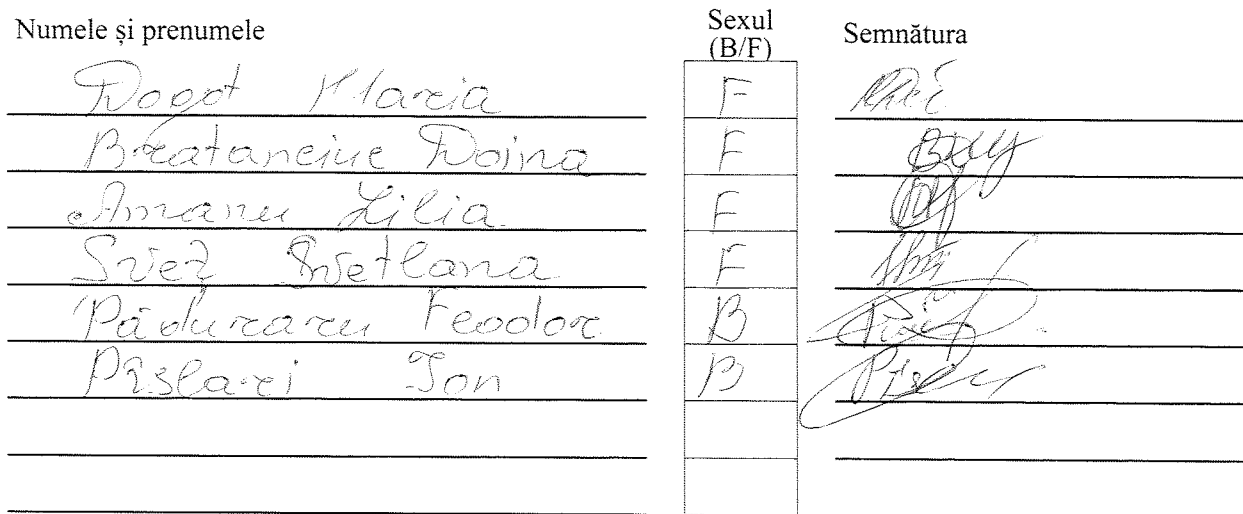 Numele și prenumele Sexul (B/F) Semnătura
Dogot Maria F
Bratanciuc Doina F
Amanu Lilia F
Svez Svetlana F
Păduraru Feodor B
Pîslari Ion B